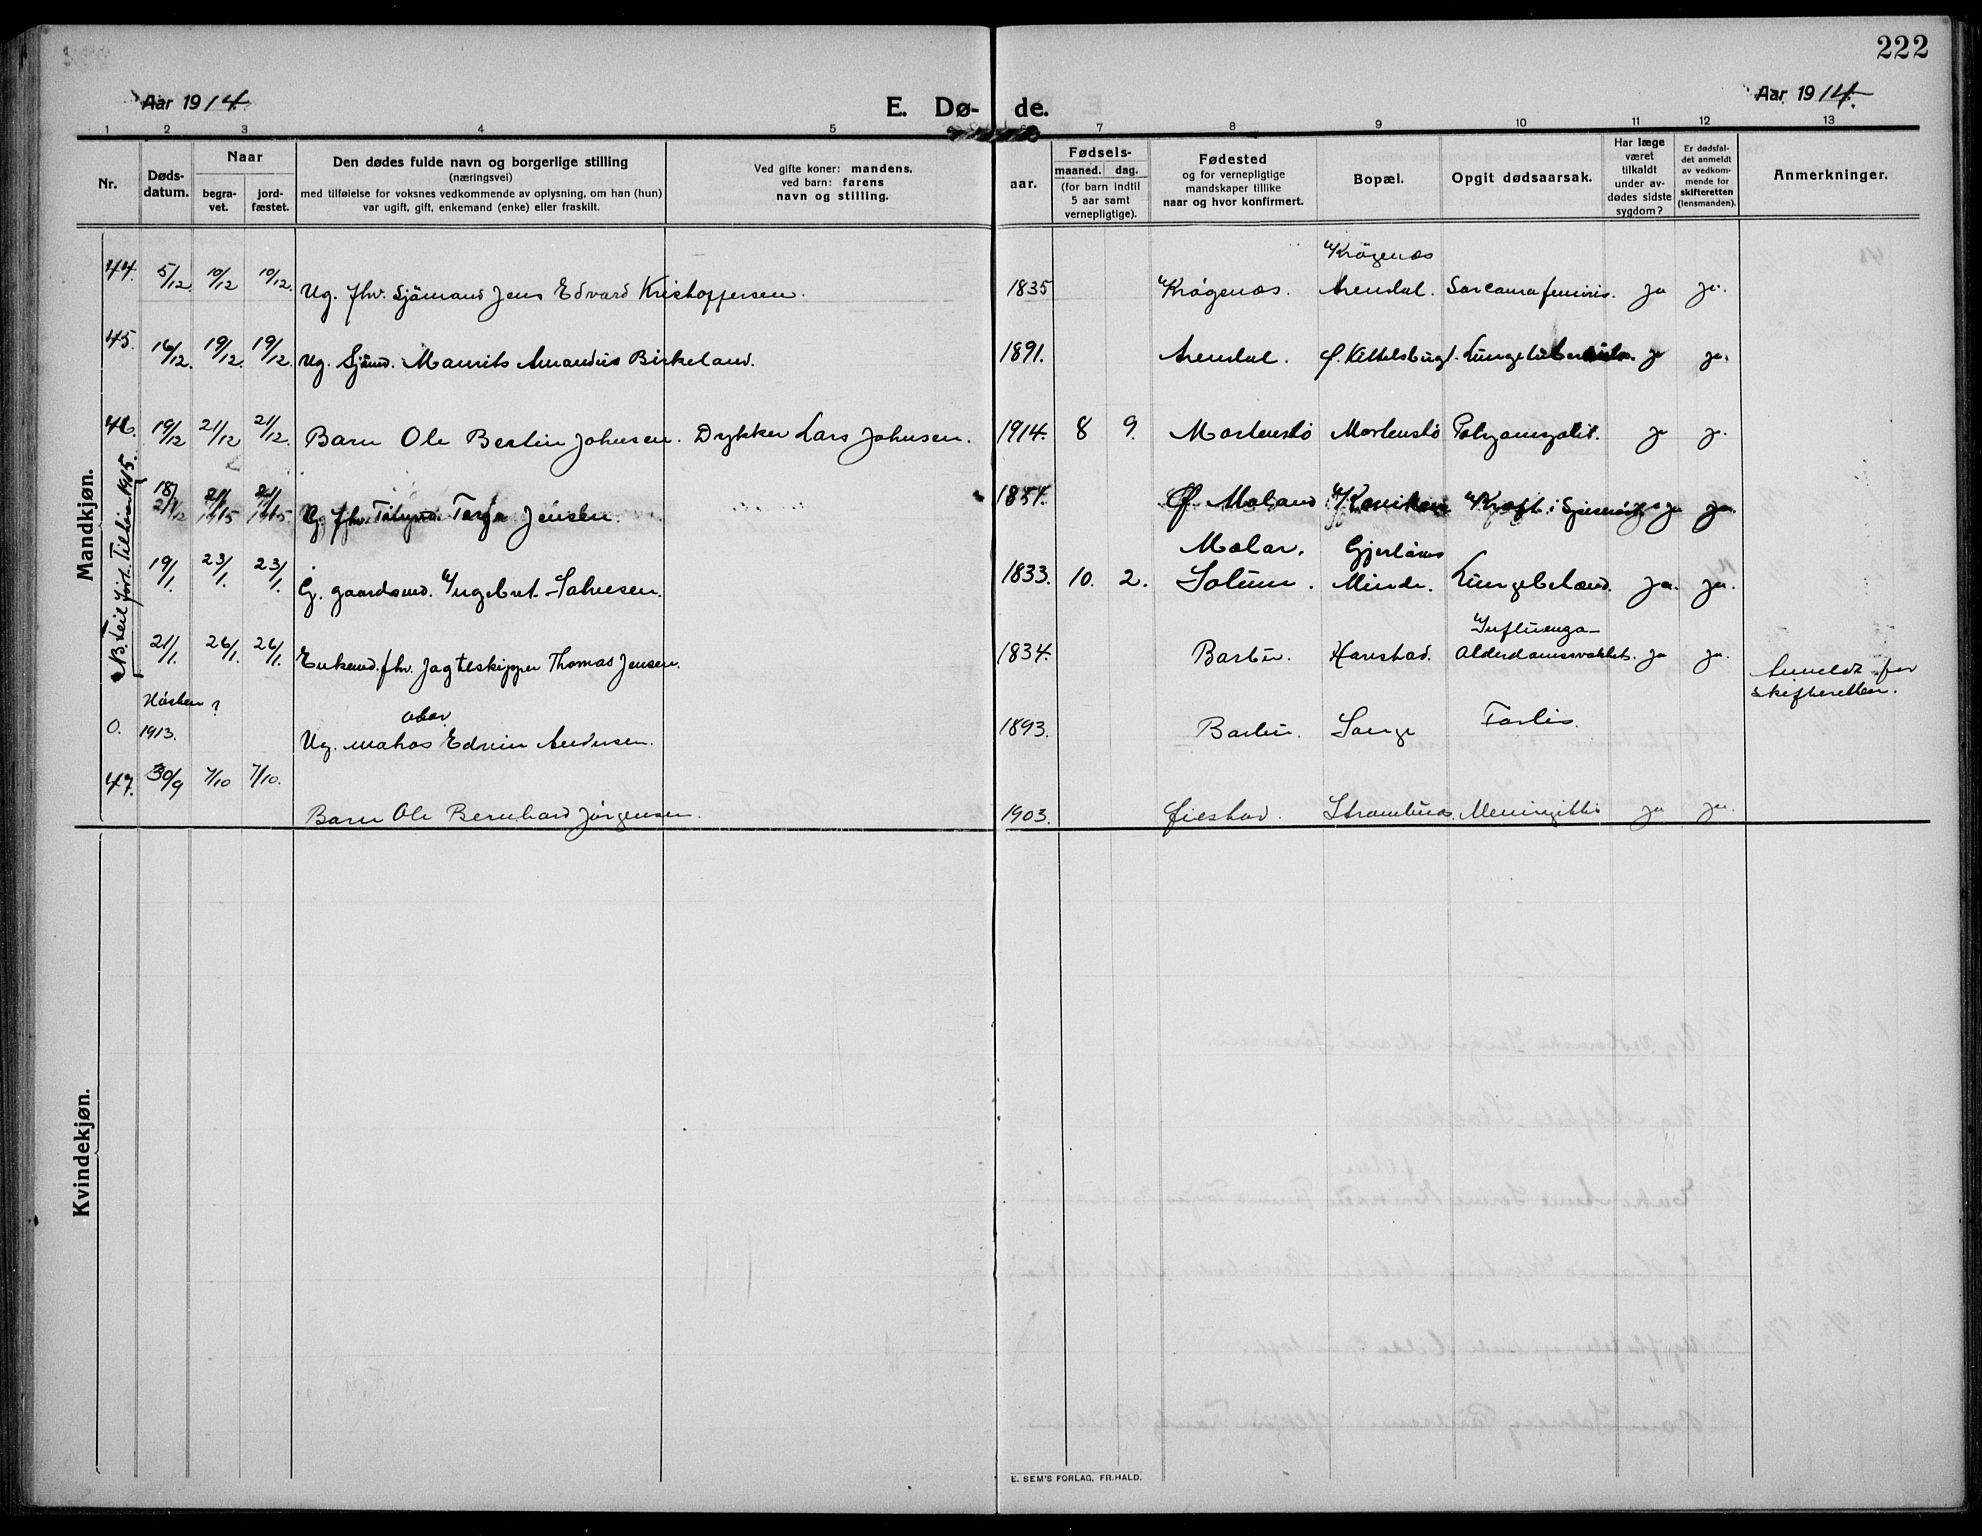 222
Aar 1914.
E. Dø- de.
Aar 1914.
1 2 3 4 5 7 8 9 10 11 12 13
Nr.
Døds-
datum.
Naar
begra-
vet.
jord-
fæstet.
Den dødes fulde navn og borgerlige stilling
(næringsvei)
med tilføielse for voksnes vedkommende av oplysning, om han (hun)
var ugift, gift, enkemand (enke) eller fraskilt.
Ved gifte koner: mandens,
ved barn: farens
navn og stilling.
aar.
Fødsels-
maaned. dag.
(for barn indtil
5 aar samt
vernepligtige).
Fødested
og for vernepligtige
mandskaper tillike
naar og hvor konfirmert.
Bopæl.
Opgit dødsaarsak.
Har læge
været
tilkaldt
under av-
dødes sidste
sygdom?
Er dødsfal-
det anmeldt
av vedkom-
mende for
skifteretten
(lensmanden).
Anmerkninger.
Mandkjøn.
Krøgenæs
44. 5/12 10/12 10/12. Ug. fhv. Sjömand Jens Edvard Kristoffersen. 1835 Krøgenæs. Arendal. Sarcoma femoris. ja ja.
45. 16/12. 19/12. 19/12. Ug. Sjømd. Maurits Amandus Birkeland. 1891. Arendal. Kittelsbugt. ja ja.
46. 19/12 21/12 21/12. Barn Ole Bertin Johnsen. Dykker Lars Johnsen. 1914. 8 9. Mortensbö Mortensbö ja ja.
NB. Feil ført. Tilhører 1915.
18/1 21/1 21/1 G. fhv. Terje Jensen. 1854. Ø. Moland Kræft i ja ja.
Molar. Gjerløws
19/1. 23/1. 23/1. G. gaardmd. Ingebret Salvesen. 1833. 10. 2. Solum. Minde. Lungebetænd. ja. ja.
Influenza-
21/1. 26/1. 26/1. Enkemd. fhv. Jagteskipper Thomas Jensen. 1834. Barbu. Harestad. Alderdomssvakhet. ja ja.
Anmeldt for
skifteretten.
Høsten ?
0. 1913. Ug. matros Edvin Andersen. 1893. Barbu. Songe Forlis.
47. 30/9 7/10 7/10. Barn Ole Bernhard Jørgensen. 1903. Øiestad. Strømbus. Meningitis ja ja.
Kvindekjøn.
E. SEM'S FORLAG, FR.HALD.